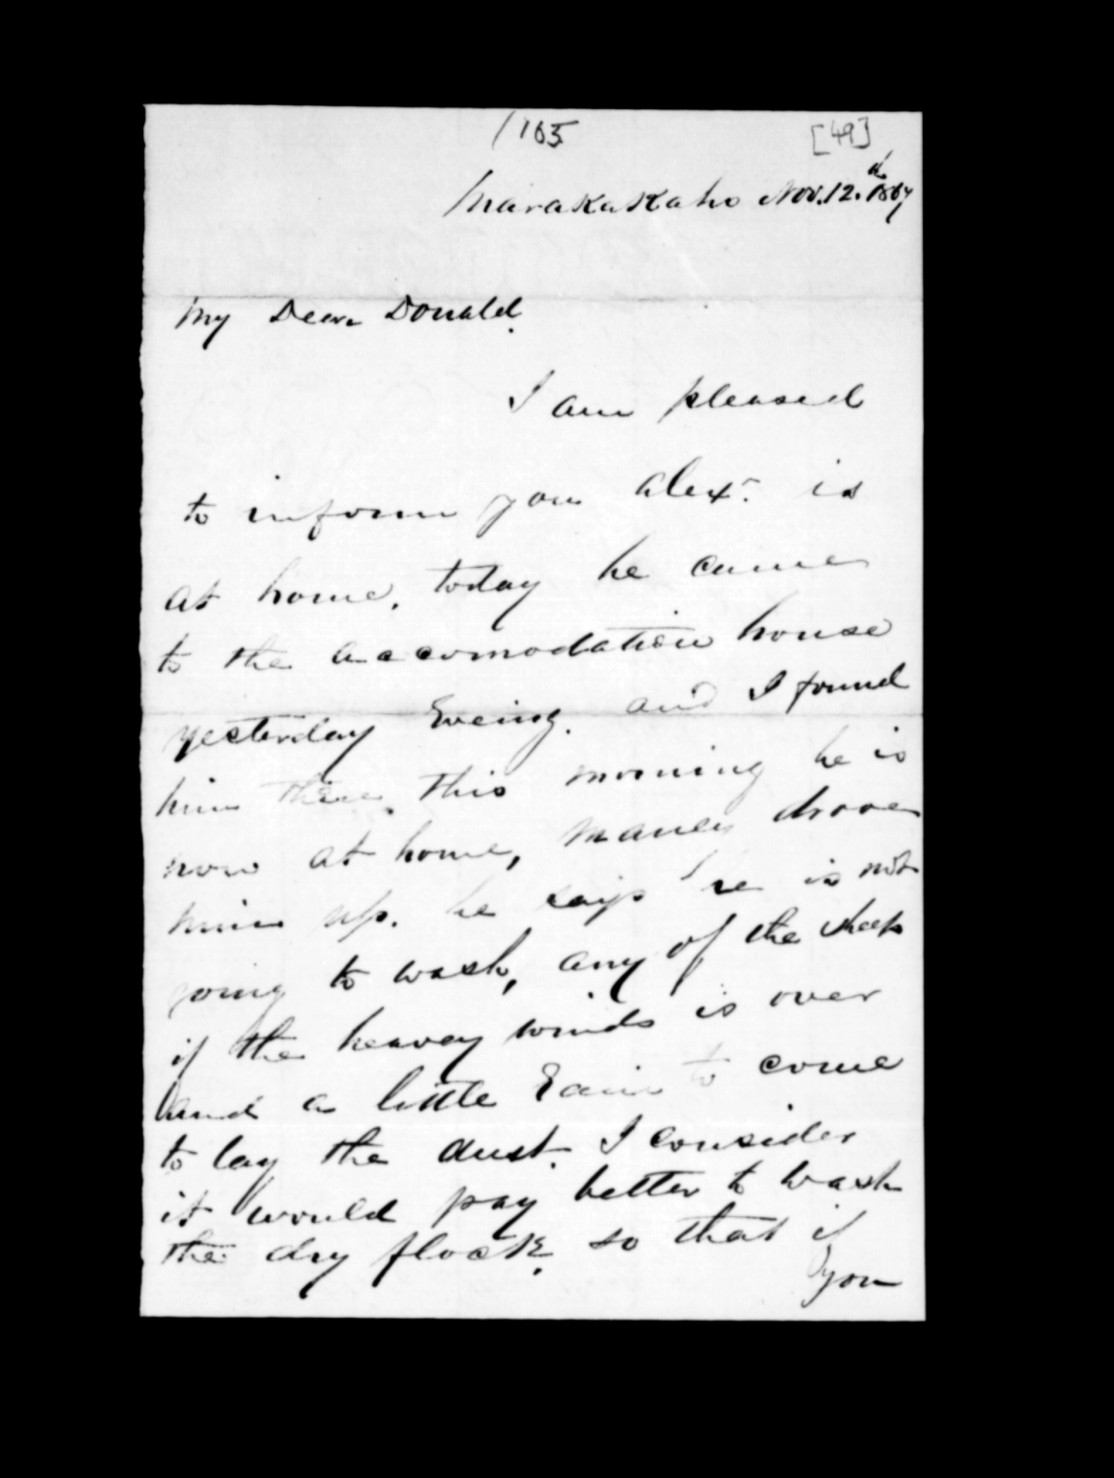 1165 [49]
Marakakaho Nov. 12.th 1867
My Dear Donald.
I am pleased
to inform you Alexr. is
at home. today he came
to the accomodation house
yesterday Eveing. and I found
him there. this morning he is
now at home, Maney drove
him up. he says he is not
going to wash, any of the sheep
if the heavey winds is over
and a little Rain to come
to lay the dust. I consider
it would pay better to wash
the dry flock. so that if
you